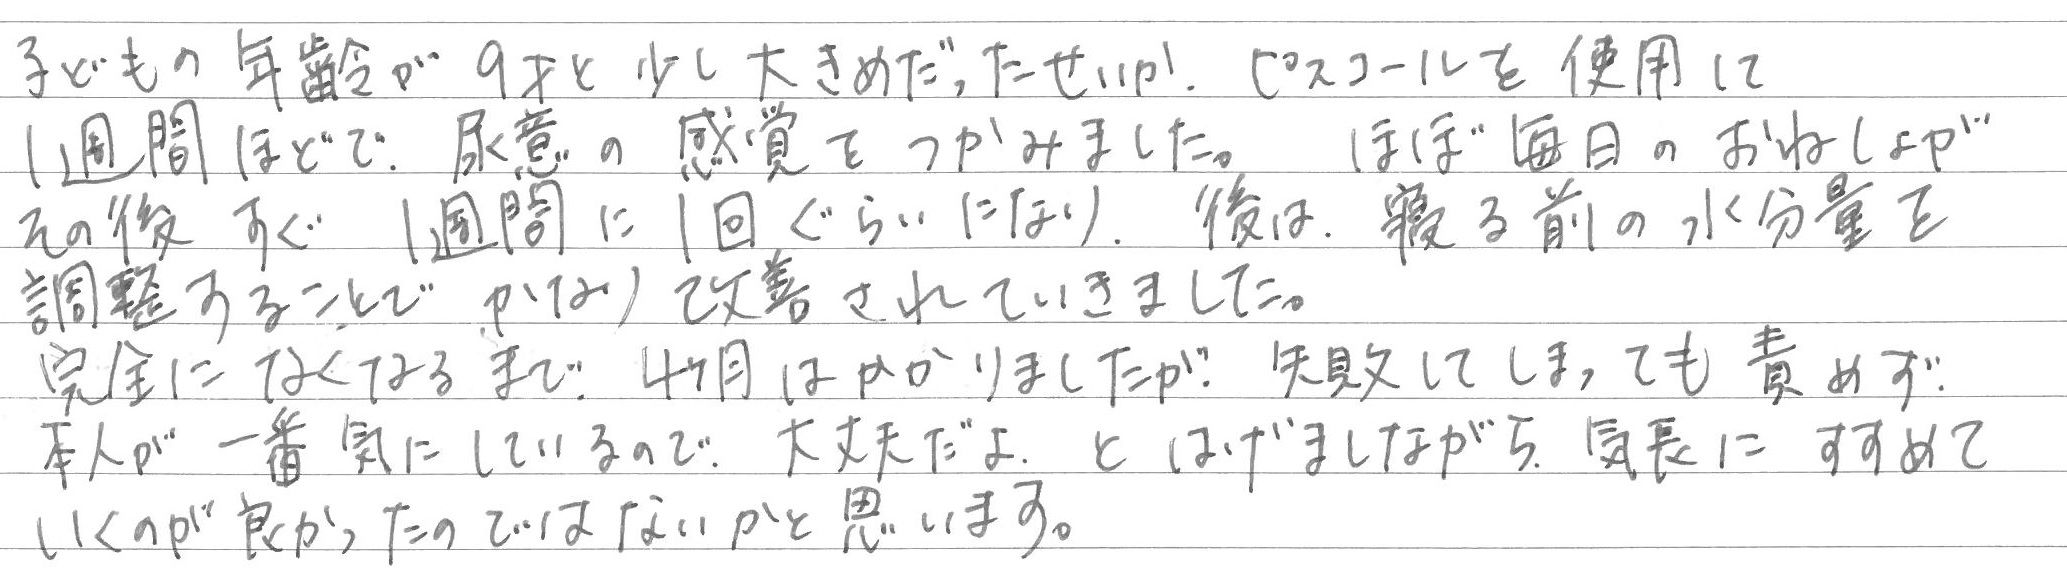 子どもの年齢が9才と少し大きめだったせいか、ピスコールを使用して
1週間ほどで、尿意の感覚をつかみました。 ほぼ毎日のおねしょが
その後すぐ 1週間に1回ぐらいになり、後は、寝る前の水分量を
調整することで かなり改善されていきました。
完全になくなるまで、4ヶ月はかかりましたが、失敗してしまっても責めず、
本人が一番気にしているので、大丈夫だよ、とはげましながら、気長にすすめて
いくのが良かったのではないかと思います。